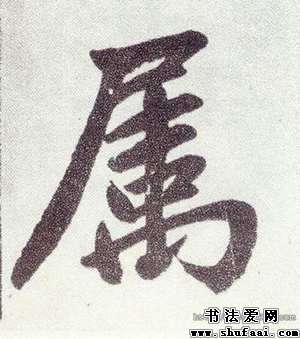 属
书法爱网
www.shufaai.com